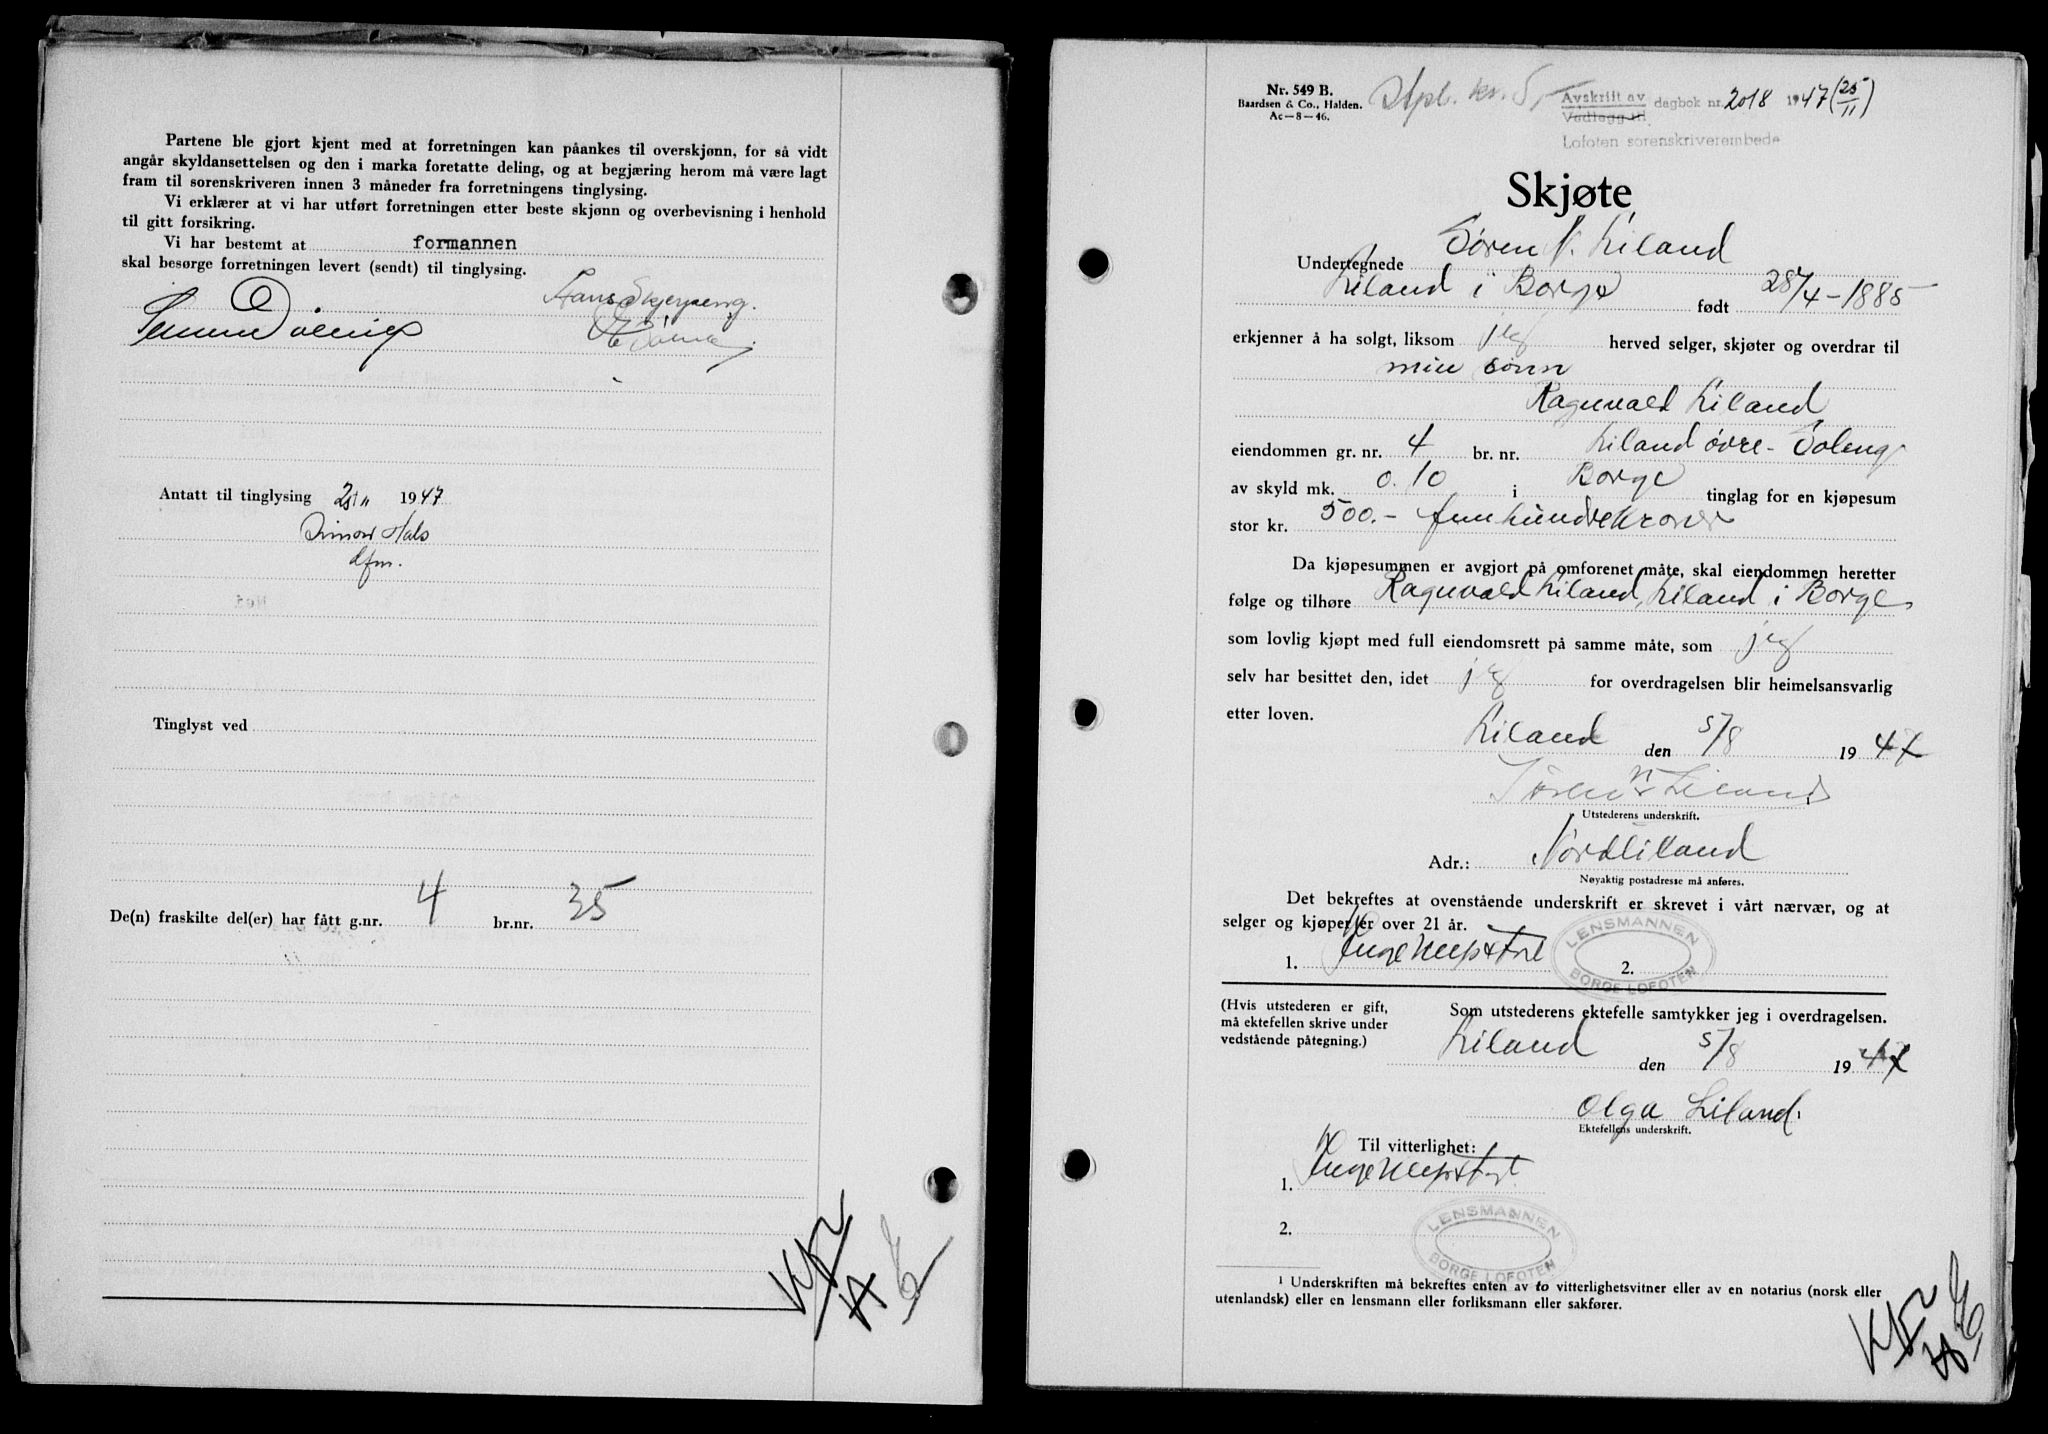 Partene ble gjort kjent med at forretningen kan påankes til overskjønn, for så vidt
angår skyldansettelsen og den i marka foretatte deling, og at begjæring herom må være lagt
fram til sorenskriveren innen 3 måneder fra forretningens tinglysing.
Vi erklærer at vi har utført forretningen etter beste skjønn og overbevisning i henhold
til gitt forsikring.
Vi har bestemt at formannen
skal besørge forretningen levert (sendt) til tinglysing.
Antatt til tinglysing 1947
Simon Hals
lfm.
Tinglyst ved
De(n) fraskilte del(er) har fått g.nr. 4 br.nr. 35
Nr. 549 B.
Baardsen & Co., Halden.
Ac—8—46.
Stpl. kr. 5,- Avskrift av
Vedlegg til
dagbok nr. 2018 1947 (25/11)
Lofoten sorenskriverembede
Skjøte
Undertegnede Søren N. Liland
Liland i Borge født 28/4-1885
erkjenner å ha solgt, liksom jeg herved selger, skjøter og overdrar til
min sønn
Ragnvald Liland
eiendommen gr. nr. 4 br. nr. Liland øvre - Soleng
av skyld mk. 0.10 i Borge tinglag for en kjøpesum
stor kr. 500.- femhundrekroner
Da kjøpesummen er avgjort på omforenet måte, skal eiendommen heretter
følge og tilhøre Ragnvald Liland, Liland i Borge
som lovlig kjøpt med full eiendomsrett på samme måte, som jeg
selv har besittet den, idet jeg for overdragelsen blir heimelsansvarlig
etter loven.
Liland den 5/8 1947
Søren N Liland
Utstederens underskrift.
Adr.: Nordliland
Nøyaktig postadresse må anføres.
Det bekreftes at ovenstående underskrift er skrevet i vårt nærvær, og at
selger og kjøper er over 21 år.
1. 2.
LENSMANNEN
BORGE LOFOTEN
(Hvis utstederen er gift,
må ektefellen skrive under
vedstående påtegning.)
Som utstederens ektefelle samtykker jeg i overdragelsen.
Liland den 5/8 1947
Olga Liland
Ektefellens underskrift.
Til vitterlighet:
1.
2.
LENSMANNEN
BORGE LOFOTEN
1 Underskriften må bekreftes enten av to vitterlighetsvitner eller av en notarius (norsk eller
utenlandsk) eller en lensmann eller forliksmann eller sakfører.